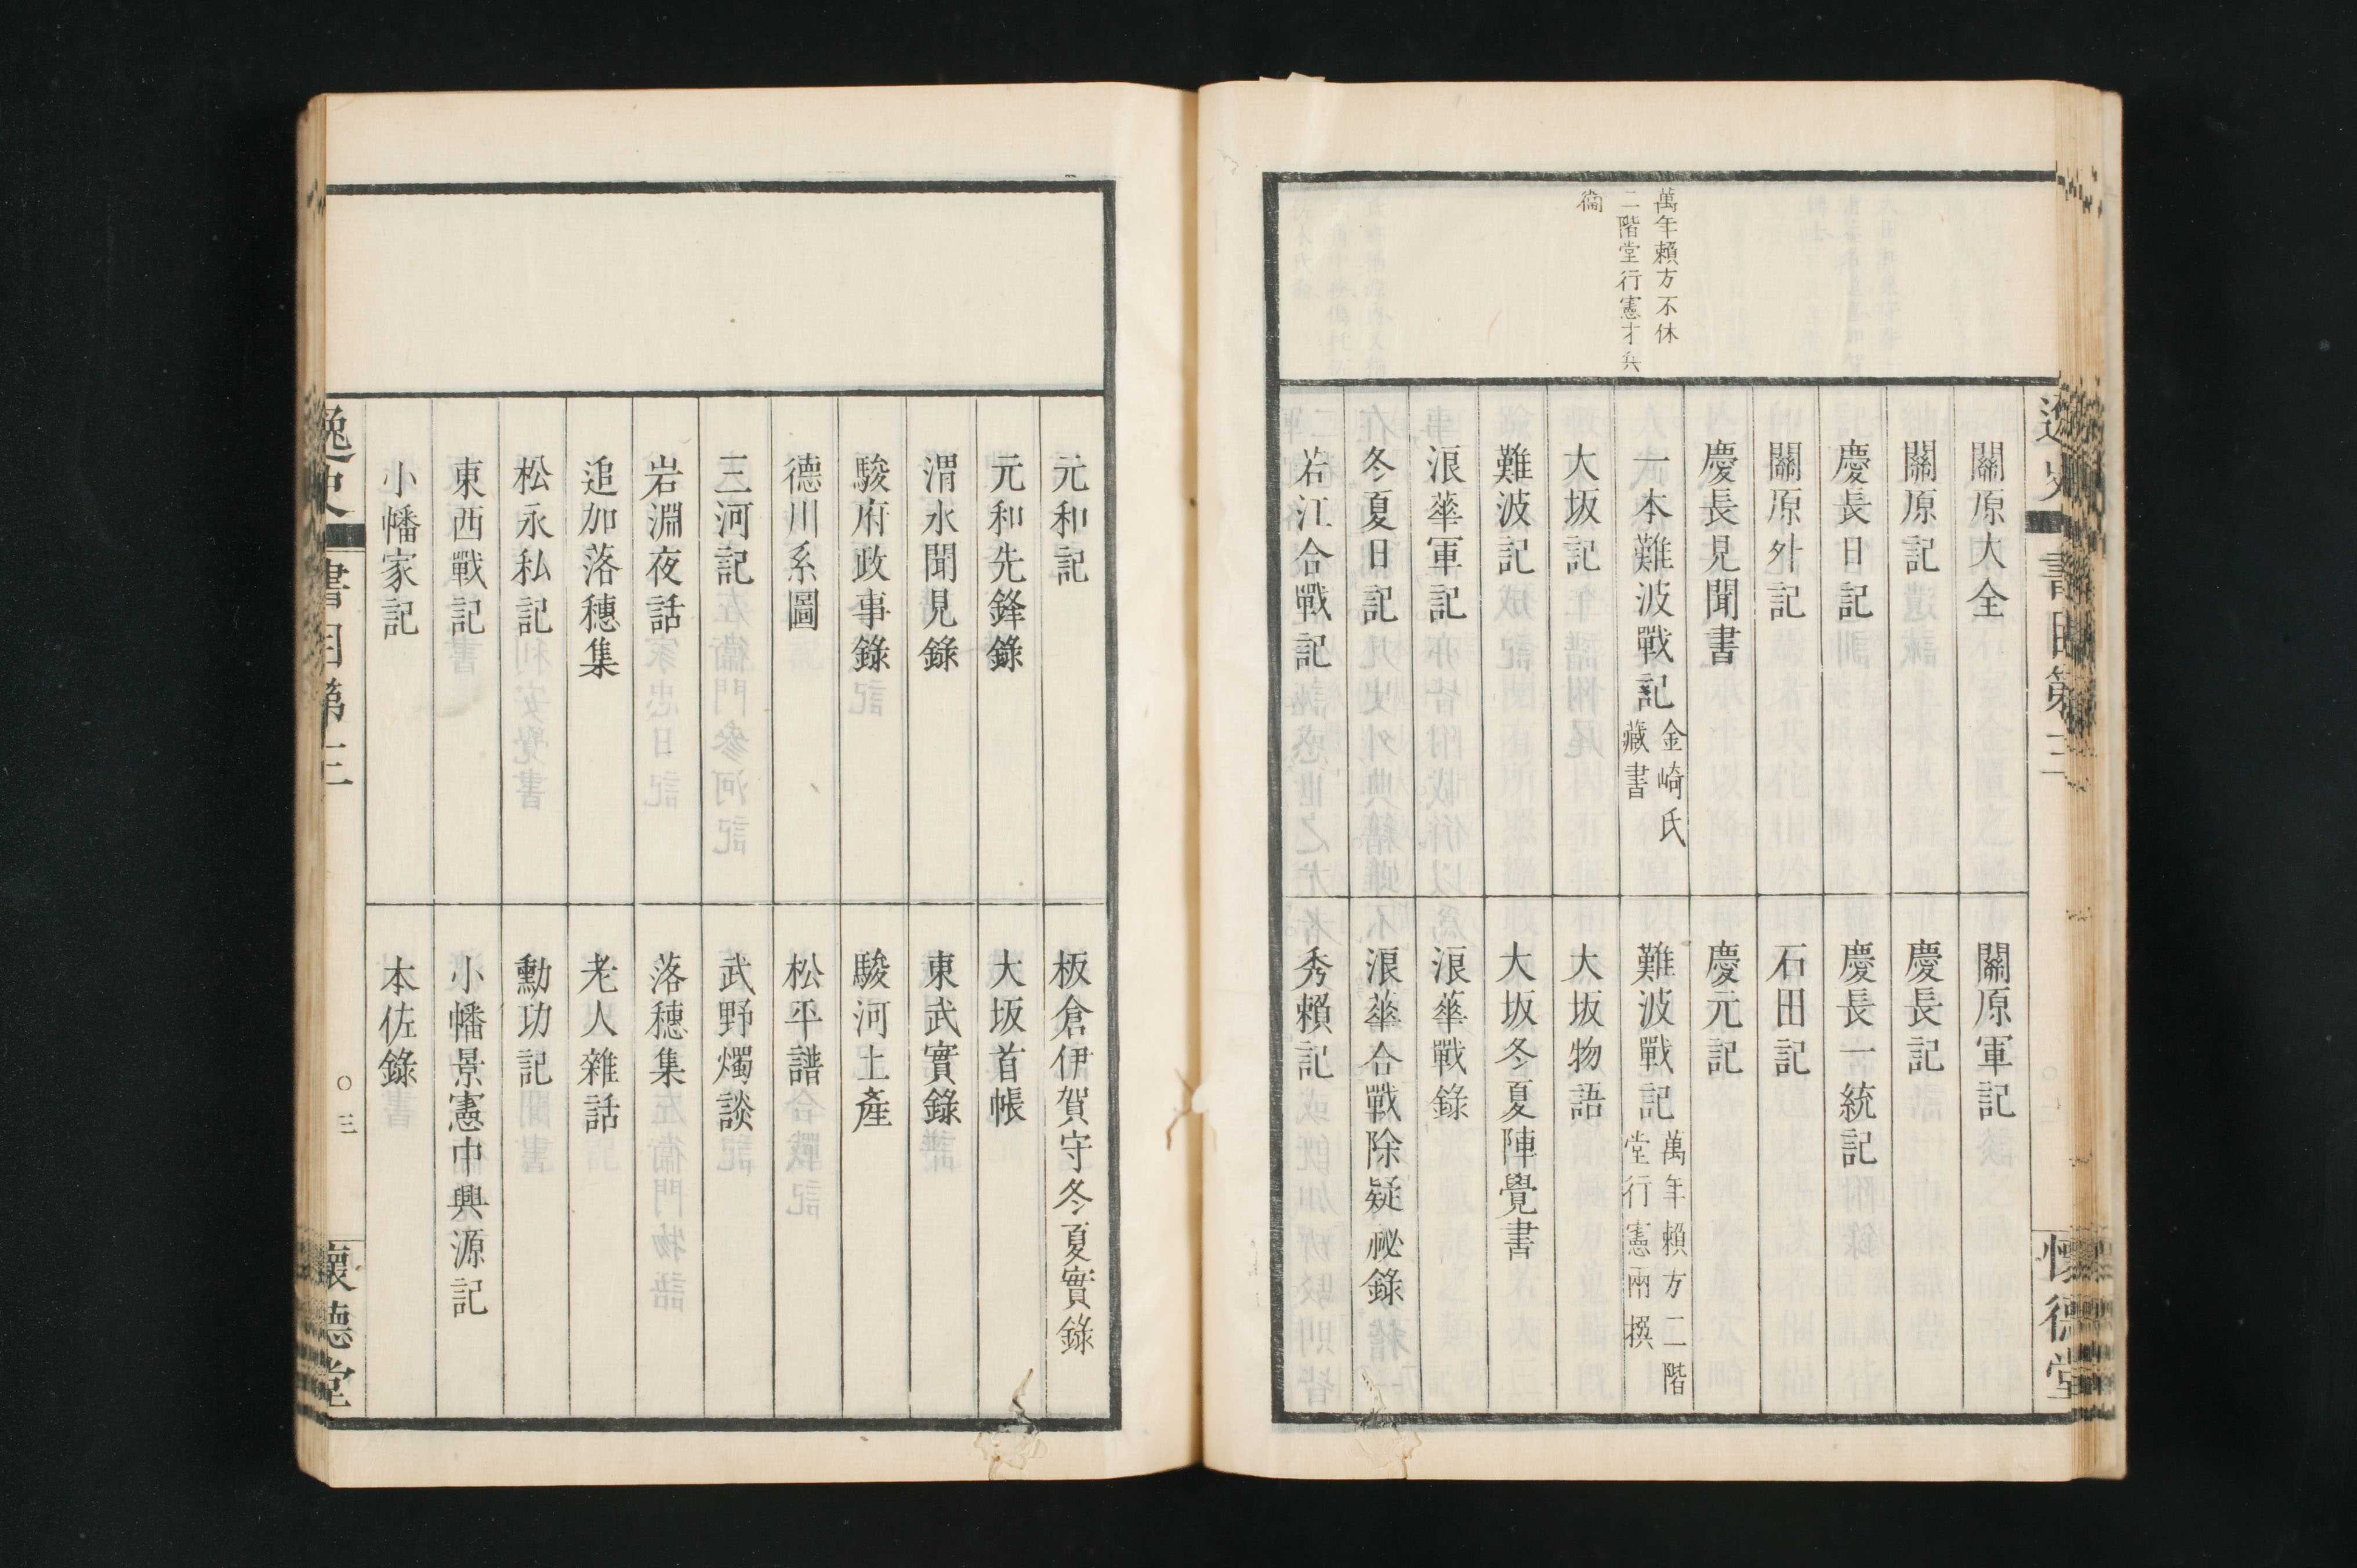 萬年賴方不休
二階堂行憲才兵
衞
關原大全
關原軍記
關原記
慶長記
慶長日記
慶長一統記
關原外記
石田記
慶長見聞書
慶元記
一本難波戰記
金崎氏
藏書
難波戰記
萬年賴方二階
堂行憲兩撰
大坂記
大坂物語
難波記
大坂冬夏陣覺書
浪華軍記
浪華戰錄
冬夏日記
浪華合戰除疑祕錄
若江合戰記
秀賴記
元和記
板倉伊賀守冬夏實錄
元和先鋒錄
大坂首帳
渭水聞見錄
東武實錄
駿府政事錄
駿河土產
德川系圖
松平譜
三河記
武野燭談
岩淵夜話
落穗集
追加落穗集
老人雜話
松永私記
勳功記
東西戰記
小幡景憲中興源記
小幡家記
本佐錄
逸史
書目第
三
懷德堂